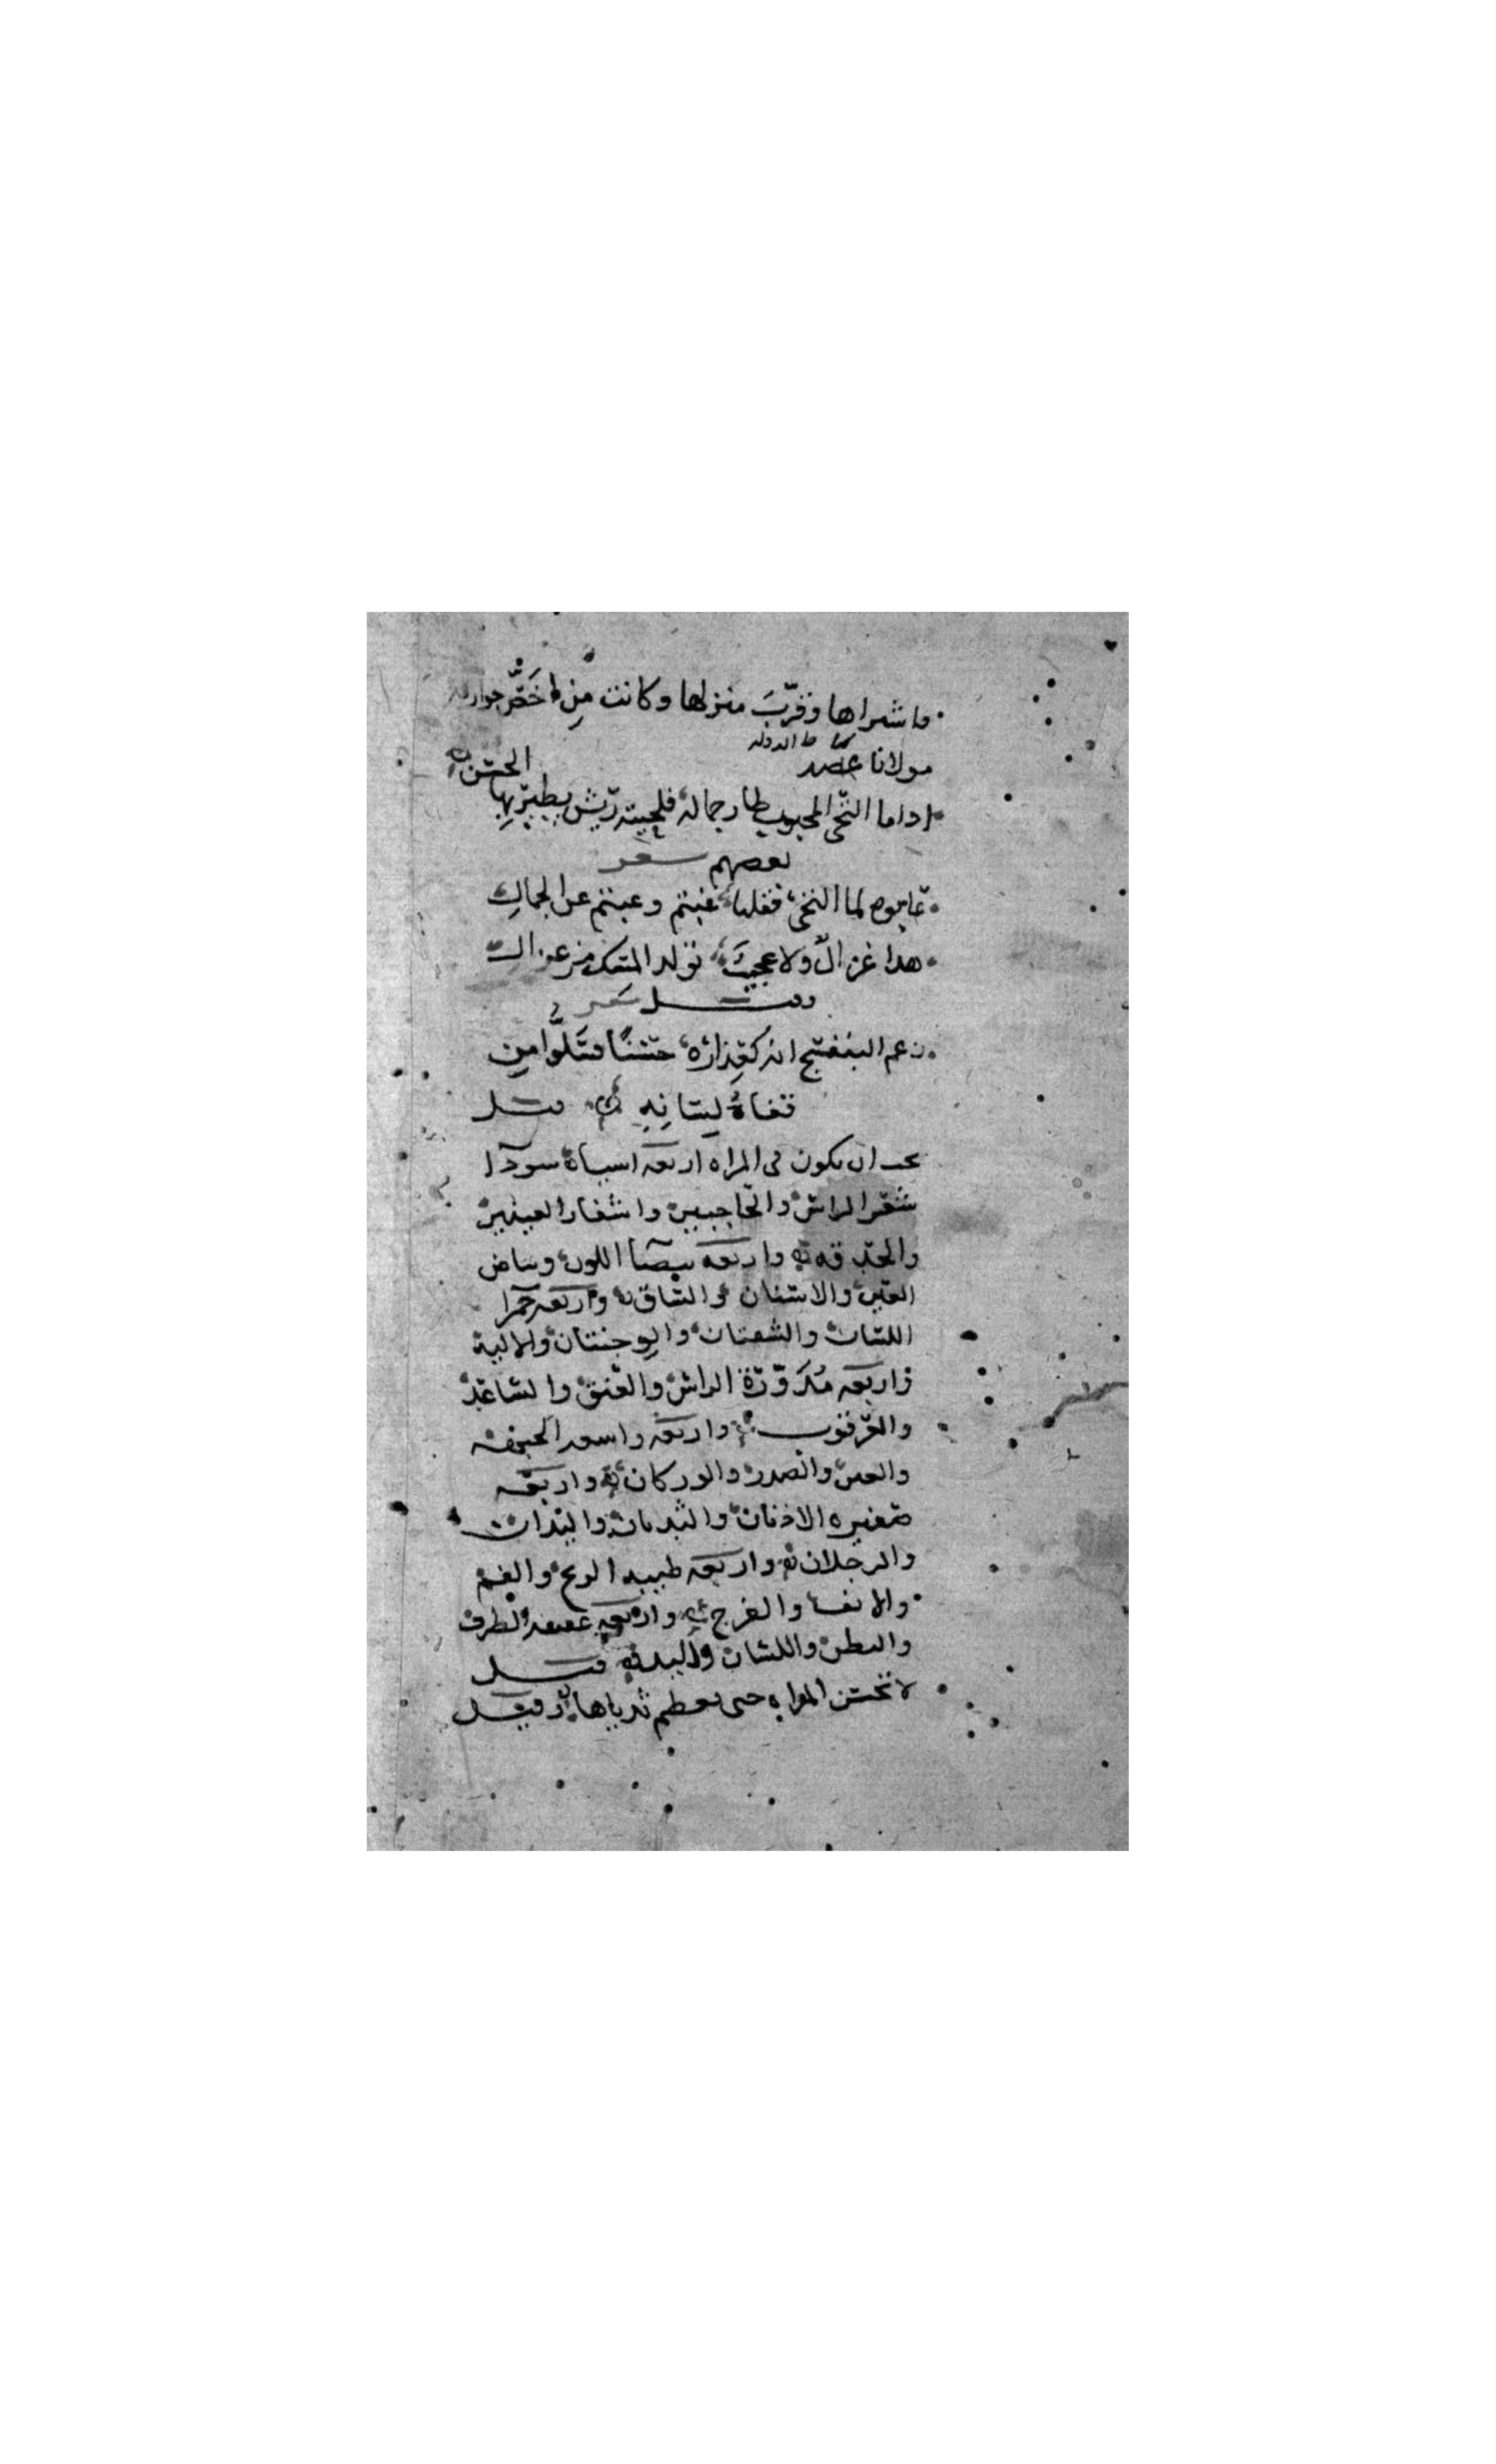 فاشتراها وقرّبَ منزلها وكانت مِن اخَصّ جواريه
مولانا عضد الدوله
اداما التحى المحبوب طار جماله فلحيته ريش يطير بها الحسن
لبعضهم شعر
عابوه لما التحى فقلنا عبتم وغبتم عن الجمال
هدا غزالٌ ولا عجيبَ تولد المسك من غزال
وقيل شعر
زعم البنفسج انه كعِذاره حسنًا فسَلّوا من
قفاهُ لسانهِ قيل
يجب ان يكون فى المراه اربعه اسياء سودا
شعر الراس والحاجبين واشفار العينين
والحدقه واربعه بيضا اللون وبياض
العين والاسنان والساق واربعه حمرا
اللسان والشفتان والوجنتان والالية
واربعه مُدَوّرة الراس والعنق والساعد
والعرقوب واربعه واسعه الجبهه
والعين والصدر والوركان واربعه
صغيره الاذنان والثديان واليدان
والرجلان واربعه طيبه الريح والفم
والانف والفرج واربعه عفيفه الطرف
والبطن واللسان واليد قيل
لا تحسن المراه حتى يعظم ثدياها وقيل